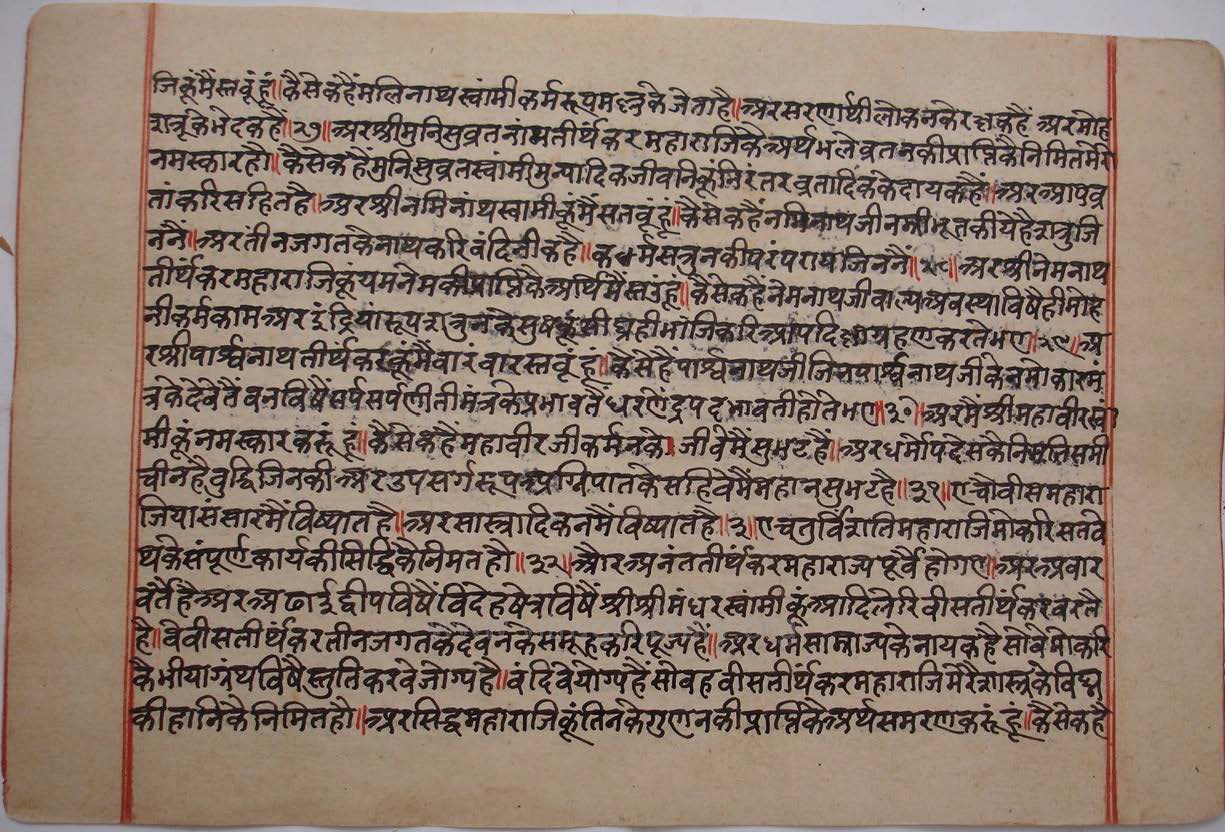 जिकूंमैंस्तवूंहूं॥कैसेकहैंमलिनाथस्वांमीकर्मरूपमल्लकेजेताहै॥अरसरणार्थीलोकनकेरक्षकहैं अरमोह
शत्रूकेभेदकहै॥२७॥अरश्रीमुनिसुव्रतनांमतीर्थंकरमहाराजिकैअर्थभलेव्रतनकीप्राप्तिकैनिमितमेरो
नमस्कारहौ॥कैसेकहैंमुनिसुव्रतस्वांमीमुन्यादिकजीवनिकूंनिरंतरव्रतादिककेदायकहैं॥अरआपव्र
तांकरिसहितहै॥अरश्रीनमिनांथस्वामीकूंमैंसतवूंहूं॥कैसेकहैंनमिनाथजीनम्रीभूतकीयेहैशत्रुजि
ननै॥अरतीनजगतकैनाथकरिवंदिनीकहै॥कर्मसत्रुनकीपरंपरायजिननैं॥२८॥अरश्रीनेमनाथ
तीर्थंकरमहाराजिकूंयमनेमकीप्राप्तिकैअर्थिमैंस्तउंहूं॥कैसेकहैनेमनाथजीवाल्यअवस्थाविषैहीमोह
नीकर्मकामअरइंद्रियांरूपशत्रुनकेसुषकूंसीघ्रहीभांजिकरिआपदिक्षाग्रहणकरतेभए॥२९॥अ
रश्रीपार्श्वनाथतीर्थंकरकूंमैंवारंवारस्तवूंहूं॥कैसेहैंपार्श्वनाथजीजिनपार्श्वनाथजीकेनमोकारमं
त्रकेदेवेतैंवनविषैंसर्पसर्पणीतीमंत्रकेप्रभावतैंधरणेंद्रपदमावतीहोतेभए॥३०॥अरमैंश्रीमहावीरस्वां
मीकूंनमस्कारकरूंहूं॥कैसेकहैंमहावीरजीकर्मनकेजीवेमैंसुभटहैं॥अरधर्मोपदेसकैनिमतिसमी
चीनहैवुद्धिजिनकीअरउपसर्गरूपअग्निपातकेसहिवेमैंमहानसुभटहै॥३१॥एचौवीसमहारा
जियासंसारमैंविष्यातहै॥अरसास्त्रादिकनमैंविष्यातहै॥३॥एचतुर्विंशतिमहाराजिमोकरिसतवे
थकेसंपूर्णकार्यकीसिद्धिकेनिमतहो॥३२॥औरअनंततीर्थंकरमहाराज्यपूर्वैंहोगए॥अरअवार
वर्तैहैअरअढाईद्वीपविषैंविदेहषेत्राविषैंश्रीश्रीमंधरस्वांमीकूंआदिलेरिवीसतीर्थंकरवरतै
है॥वेवीसतीर्थंकरतीनजगतकेदेवनकेसमूहकरिपूज्यहैं॥अरधर्मसाम्राज्यकेनायकहैसोवेमोकरि
कैभीयाग्रंथविषैस्तुतिकरवेजोग्यहै॥वंदिवेयोग्यहैंसोवहवीसतीर्थंकरमहाराजिमेरैशास्त्रकेविघ्न
कीहानिकैनिमितहौ॥अरसिद्धमहाराजिकूंतिनकेगुणनकीप्राप्तिकैअर्थसमरणकरूंहूं॥कैसेकहै